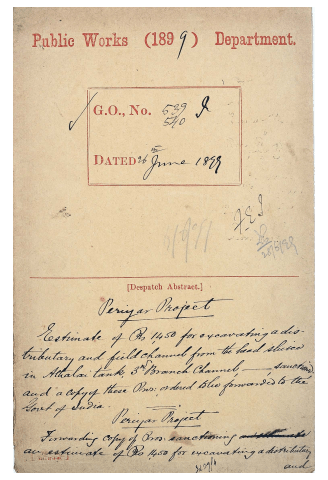 Public Works (1899) Department.
G.O., No. 539 I
540
DATED 26th June 1899
[Despatch Abstract.]
Periyar Project
Estimate of Rs 1450 for excavating a dis-
tributary and field channel from the head sluice
in Attalai tank 3rd Branch Channel, sanctioned
and a copy of these Pros. ordered to be forwarded to the
Govt of India.
Periyar Project
Forwarding copy of Pros. sanctioning
an estimate of Rs 1450 for excavating a distributary
and